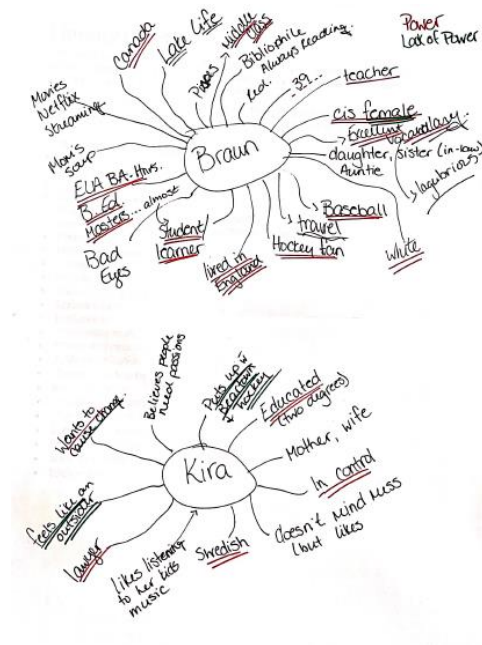 Power
Lack of Power
Canada
Lake Life
Middle
Class
Bibliophile
Always Reading.
Red.
39...
teacher
cis female
Excellent vocabulary
↳ lugubrious
daughter, sister (in-law)
Auntie
White
Baseball
travel
Hockey fan
lived in
England
Student/
learner
Bad
Eyes
ELA BA. Hnrs.
B. Ed.
Masters... almost
Mom's
soup
Movies
Netflix
Streaming
Braun
Believes people
need passions
Puts up w
Beartown
hockey
Educated
(two degrees)
Mother, wife
In control
doesn't mind mess
(but likes
Swedish
Likes listening
to her kids
music
Lawyer
feels like an
outsider
Wants to
cause change.
Kira